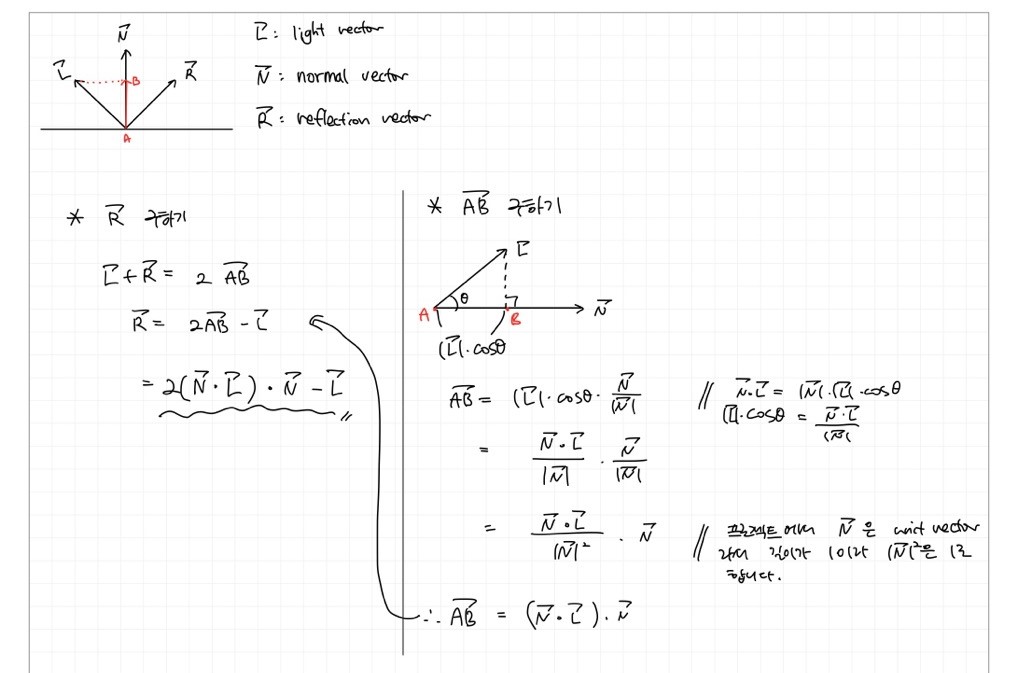 N⃗
L⃗
R⃗
B
A
L⃗: light vector
N⃗: normal vector
R⃗: reflection vector
* R⃗ 구하기
L⃗+R⃗ = 2 AB⃗
R⃗ = 2AB⃗ - L⃗
= 2(N⃗·L⃗)·N⃗ - L⃗ //
* AB⃗ 구하기
L⃗
θ
N⃗
A
B
|L⃗|·cosθ
AB⃗ = |L⃗|·cosθ· N⃗/|N⃗| // N⃗·L⃗ = |N⃗|·|L⃗|·cosθ
|L⃗|·cosθ = N⃗·L⃗/|N⃗|
= N⃗·L⃗/|N⃗| · N⃗/|N⃗|
= N⃗·L⃗/|N⃗|² · N⃗ // 프로젝트 에서 N⃗ 은 unit vector
라서 길이가 1이라 |N⃗|²은 1로
합니다.
∴ AB⃗ = (N⃗·L⃗)·N⃗